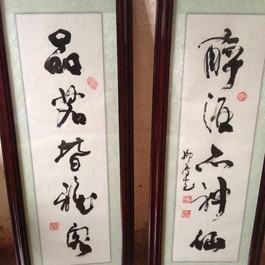 品茗皆雅客
醉酒亦神仙